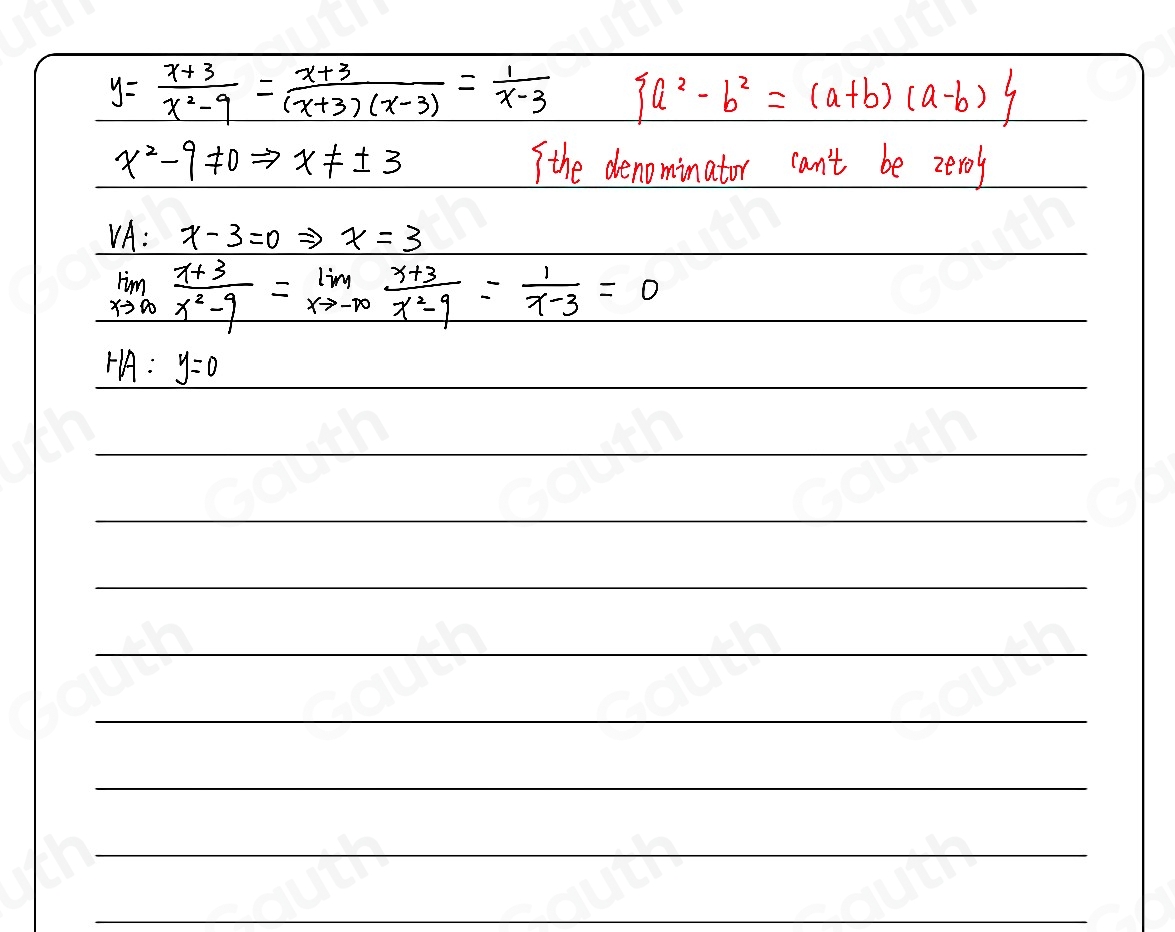 y = \frac{x+3}{x²-9} = \frac{x+3}{(x+3)(x-3)} = \frac{1}{x-3} {a² - b² = (a+b)(a-b)}
x²-9≠0 ⇒ x ≠ ± 3 {the denominator can't be zero}
VA: x-3=0 ⇒ x = 3
\lim_{x→∞} \frac{x+3}{x²-9} = \lim_{x→-∞} \frac{x+3}{x²-9} = \frac{1}{x-3} = 0
HA: y=0
Gauth